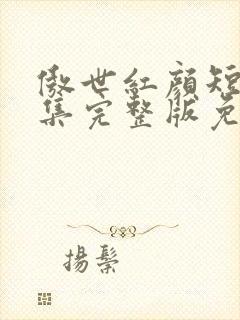 傲世紅顏短
集完整版免
揚鬃